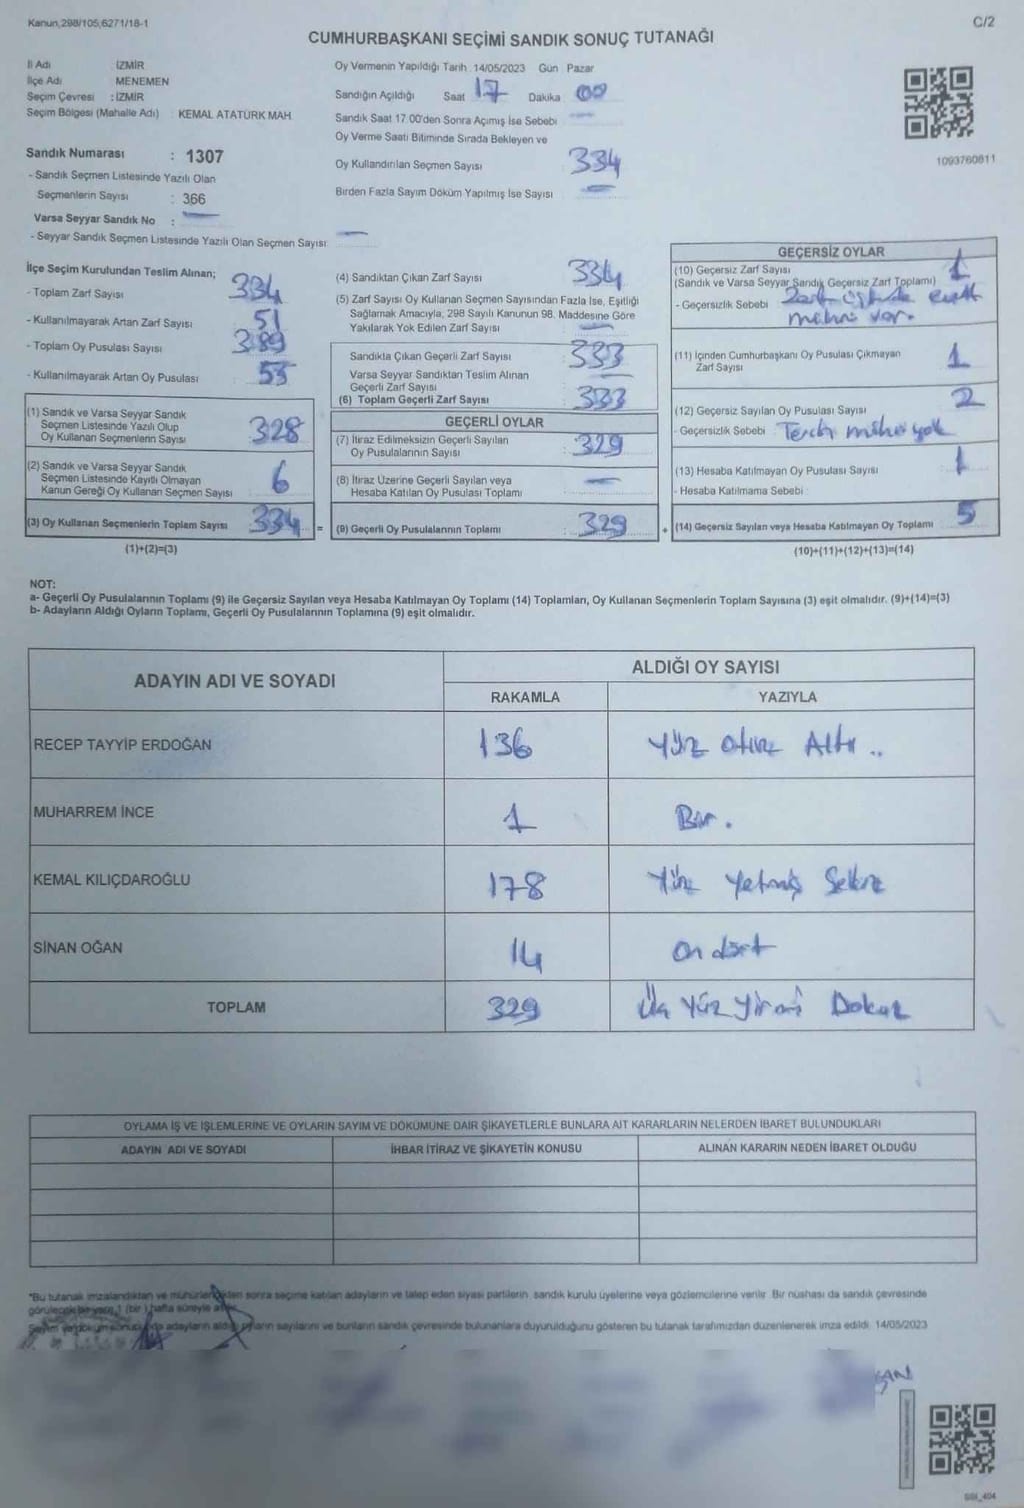 Kanun,298/105,6271/18-1
C/2
CUMHURBAŞKANI SEÇİMİ SANDIK SONUÇ TUTANAĞI
İl Adı İZMİR
İlçe Adı MENEMEN
Seçim Çevresi : İZMİR
Seçim Bölgesi (Mahalle Adı) : KEMAL ATATÜRK MAH.
Sandık Numarası : 1307
- Sandık Seçmen Listesinde Yazılı Olan
Seçmenlerin Sayısı : 366
Varsa Seyyar Sandık No :
- Seyyar Sandık Seçmen Listesinde Yazılı Olan Seçmen Sayısı:
Oy Vermenin Yapıldığı Tarih 14/05/2023 Gün Pazar
Sandığın Açıldığı Saat 17 Dakika 00
Sandık Saat 17.00'den Sonra Açımış İse Sebebi
Oy Verme Saati Bitiminde Sırada Bekleyen ve
Oy Kullandırılan Seçmen Sayısı 334
Birden Fazla Sayım Döküm Yapılmış İse Sayısı
1093760811
İlçe Seçim Kurulundan Teslim Alınan;
- Toplam Zarf Sayısı 334
- Kullanılmayarak Artan Zarf Sayısı 51
- Toplam Oy Pusulası Sayısı 389
- Kullanılmayarak Artan Oy Pusulası 55
(1) Sandık ve Varsa Seyyar Sandık
Seçmen Listesinde Yazılı Olup
Oy Kullanan Seçmenlerin Sayısı 328
(2) Sandık ve Varsa Seyyar Sandık
Seçmen Listesinde Kayıtlı Olmayan
Kanun Gereği Oy Kullanan Seçmen Sayısı 6
(3) Oy Kullanan Seçmenlerin Toplam Sayısı 334 =
(1)+(2)=(3)
(4) Sandıktan Çıkan Zarf Sayısı 334
(5) Zarf Sayısı Oy Kullanan Seçmen Sayısından Fazla İse, Eşitliği
Sağlamak Amacıyla, 298 Sayılı Kanunun 98. Maddesine Göre
Yakılarak Yok Edilen Zarf Sayısı
Sandıkta Çıkan Geçerli Zarf Sayısı 333
Varsa Seyyar Sandıktan Teslim Alınan
Geçerli Zarf Sayısı
(6) Toplam Geçerli Zarf Sayısı 333
GEÇERLİ OYLAR
(7) İtiraz Edilmeksizin Geçerli Sayılan
Oy Pusulalarının Sayısı 329
(8) İtiraz Üzerine Geçerli Sayılan veya
Hesaba Katılan Oy Pusulası Toplamı
(9) Geçerli Oy Pusulalarının Toplamı 329 +
GEÇERSİZ OYLAR
(10) Geçersiz Zarf Sayısı 1
(Sandık ve Varsa Seyyar Sandık Geçersiz Zarf Toplamı)
- Geçersizlik Sebebi Zarf üstünde evet
mührü var.
(11) İçinden Cumhurbaşkanı Oy Pusulası Çıkmayan
Zarf Sayısı 1
(12) Geçersiz Sayılan Oy Pusulası Sayısı 2
- Geçersizlik Sebebi Tercih mühri yok
(13) Hesaba Katılmayan Oy Pusulası Sayısı 1
- Hesaba Katılmama Sebebi
(14) Geçersiz Sayılan veya Hesaba Katılmayan Oy Toplamı 5
(10)+(11)+(12)+(13)=(14)
NOT:
a- Geçerli Oy Pusulalarının Toplamı (9) ile Geçersiz Sayılan veya Hesaba Katılmayan Oy Toplamı (14) Toplamları, Oy Kullanan Seçmenlerin Toplam Sayısına (3) eşit olmalıdır. (9)+(14)=(3)
b- Adayların Aldığı Oyların Toplamı, Geçerli Oy Pusulalarının Toplamına (9) eşit olmalıdır.
ADAYIN ADI VE SOYADI
ALDIĞI OY SAYISI
RAKAMLA YAZIYLA
RECEP TAYYİP ERDOĞAN 136 Yüz otuz Altı ..
MUHARREM İNCE 1 Bir.
KEMAL KILIÇDAROĞLU 178 Yüz Yetmiş Sekiz
SİNAN OĞAN 14 on dört
TOPLAM 329 Üç Yüz Yirmi Dokuz
OYLAMA İŞ VE İŞLEMLERİNE VE OYLARIN SAYIM VE DÖKÜMÜNE DAİR ŞİKAYETLERLE BUNLARA AİT KARARLARIN NELERDEN İBARET BULUNDUKLARI
ADAYIN ADI VE SOYADI İHBAR İTİRAZ VE ŞİKAYETİN KONUSU ALINAN KARARIN NEDEN İBARET OLDUĞU
"Bu tutanak imzalandıktan ve mühürlendikten sonra seçime katılan adayların ve talep eden siyasi partilerin sandık kurulu üyelerine veya gözlemcilerine verilir. Bir nüshası da sandık çevresinde
görülecek bir yere 1 (bir ) hafta süreyle asılır.
Sayım ve döküm sonucunda adayların aldığı oyların sayılarını ve bunların sandık çevresinde bulunanlara duyurulduğunu gösteren bu tutanak tarafımızdan düzenlenerek imza edildi. 14/05/2023